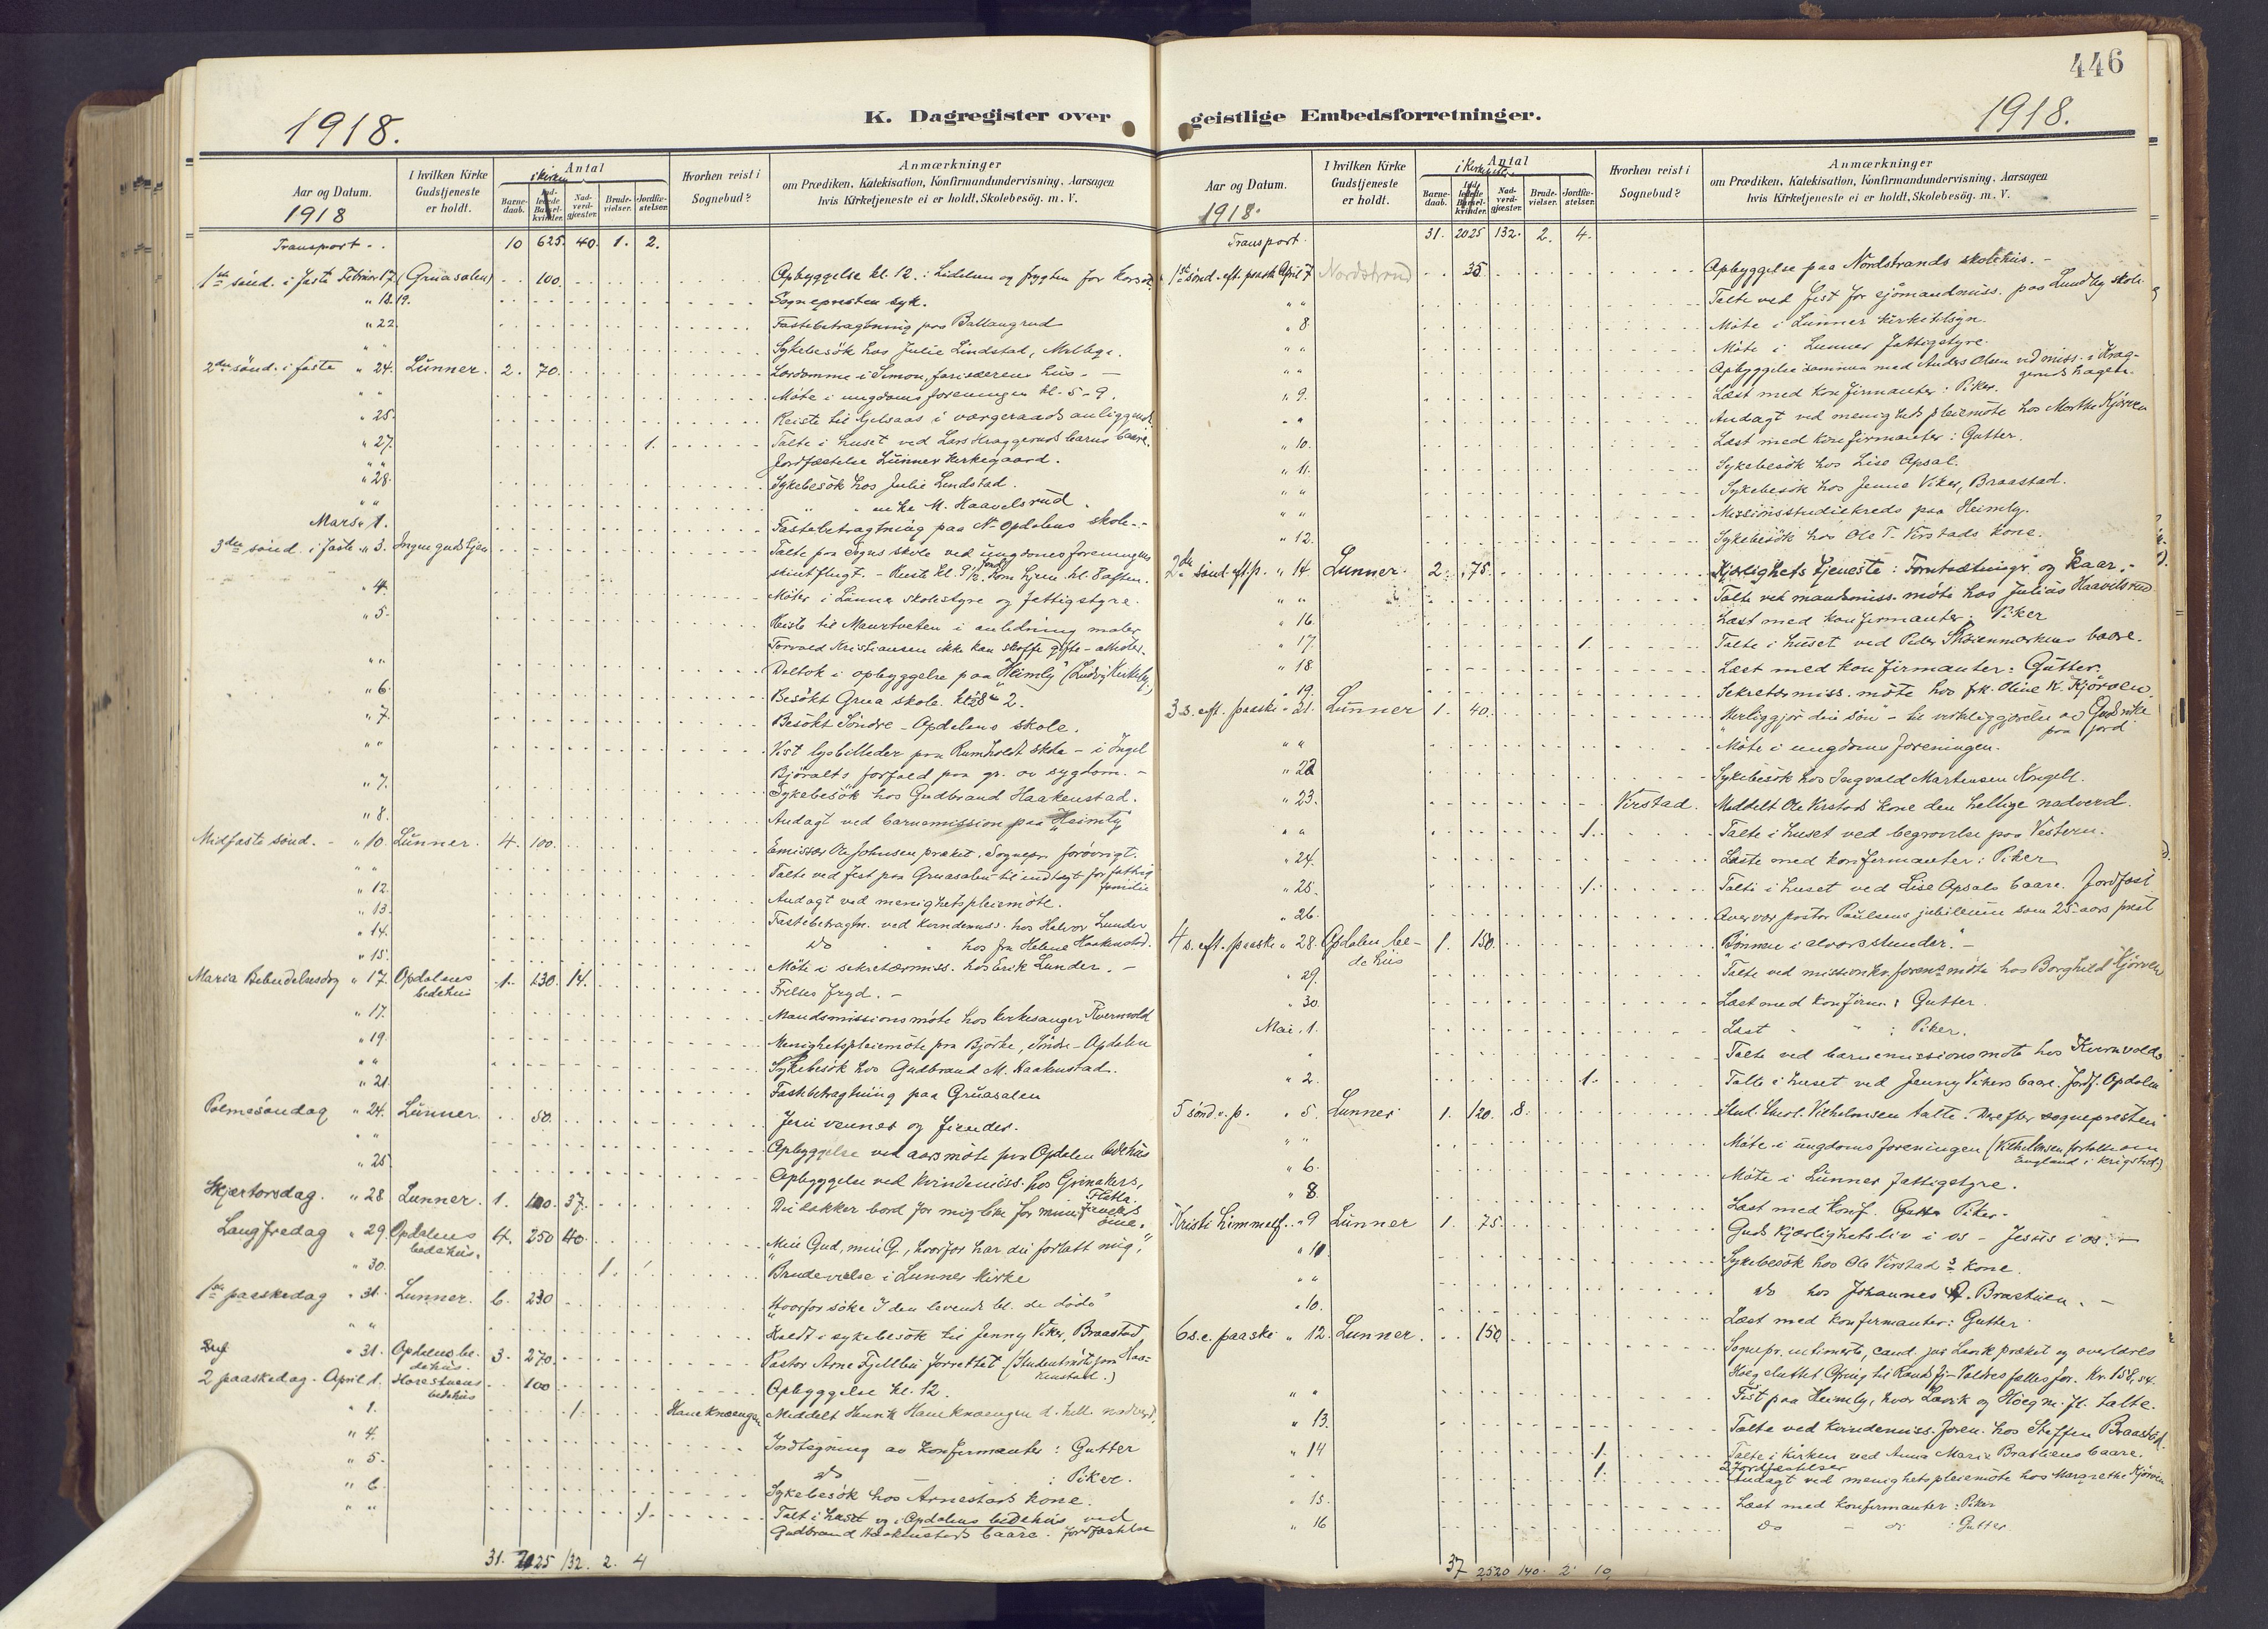 446
1918.
K. Dagregister over
geistlige Embedsforretninger.
1918.
Aar og Datum.
1918
I hvilken Kirke Gudstjeneste er holdt.
Antal
i Kirken
Barne-daab.
Ind-ledede Barsel-kvinder.
Nad-verd-gjæster.
Brude-vielser.
Jordfæ-stelser.
Hvorhen reist i Sognebud?
Anmærkninger
om Prædiken, Katekisation, Konfirmandundervisning, Aarsagen
hvis Kirketjeneste ei er holdt, Skolebesög. m. V.
Transport - . 10 625. 40. 1. 2.
1ste sönd. i faste Februar 17. (Gruasalen) 100. Opbyggelse kl. 12. : Lidelsen og frygten for korset
" 18.19. Sognepresten syk.
" 22. Fastebetragtning paa Ballangrud
" " Sykebesök hos Julie Lindstad,
2den sönd. i faste " 24. Lunner. 2. 70. i Simon, farisæerens hus. -
" " Möte i ungdomsforeningen kl. 5-9.
" 25. Reiste til i vergeraads anliggende
" 27. 1. Talte i huset ved Lars Haggeruds barns baare.
" " Jordfæstelse Lunner Kirkegaard.
" 28. Sykebesök hos Julie Lindstad.
" " " enke M. Haavelsrud.
Mars 1. Fastebetragtning paa N. Opdalens skole.
3die sönd. i faste " 3. Ingen gudstjen Talte paa skole ved ungdomsforeningens
Reiste kl. 9½, Kom hjem kl. 8 aften.
" 4. Möter i Lunner skolestyre og fattigstyre.
" 5. Reiste til i anledning maler
Torvald Kristiansen ikke kan skaffe gifte-attester.
" " Deltok i opbyggelse paa "Heimly" (Ludvig
" 6. Besökt Grua skole. 2.
" 7. Besökt Söndre-Opdalens skole.
" " Vist lysbilleder paa Rumholdt skole - i Ingel
Björalts forfald paa gr. av sygdom. -
" 7. Sykebesök hos Gudbrand Haakenstad.
" 8. Andagt ved barnemission paa Heimly
Midfaste sönd. - " 10. Lunner. 4. 100. Emissær Ole Johnsen præket. Sognepr. forövrigt.
" " Talte ved fest paa Gruasalen til indtægt for fattig familie
" 12. Andagt ved menighetspleiemöte.
" 13. Fastebetragtn. ved kvindemiss. hos Halvor Lunder
" 14. do hos fru Helene Haakenstad.
" 15. Möte i sekretærmiss. hos Erik Lunder. -
Maria Bebudelsesdag " 17. Opdalens bedehus 1. 130. 14. Frelses fryd. -
" 17. Mandsmissionsmöte hos kirkesanger Kvernvold
" 19. Menighetspleiemöte paa Björke, Söndre-Opdalen
" " Sykebesök hos Gudbrand M. Haakenstad.
" 21. Fastebetragtning paa Gruasalen
Palmesöndag " 24. Lunner. 50. Jesu venner og fiender.
" " Opbyggelse ved aarsmöte paa Opdalen bedehus
" 25 Opbyggelse ved kvindemiss. hos Grinakers, Flatla.
Skjærtorsdag. " 28 Lunner. 1. 100. 37. Du dækker bord for mig like for mine fienders öine.
Langfredag " 29. Opdalens bedehus. 4. 250 40. Min Gud, min G., hvorfor har du forlatt mig,"
" 30. 1. Brudevielse i Lunner kirke
1ste paaskedag " 31. Lunner. 6. 230 "Hvorfor söke I den levende bl. de döde"
" " Kaldt i sykebesök til Jenny Viker, Braastad,
" 31. Opdalens bedehus. 3. 270. Pastor Arne Fjellbu forrettet (Studentmöte Haakenstad.)
2 paaskedag. April 1. Harestuens bedehus 100 Opbyggelse kl. 12.
" 1. 1. Haneknængen Meddelt Henrik Haneknængen d. hell. nadverd.
" 4. Indtegning av konfirmanter : Gutter
" 5. do : Piker.
" 6. Sykebesök hos Arnestads kone.
" " 1. Talt i huset og i Opdalens bedehus ved
Gudbrand Haakenstads baare. Jordfæstelse
31. 2025 132. 2. 4
Aar og Datum.
1918.
I hvilken Kirke Gudstjeneste er holdt.
Antal
Barne-daab.
Ind-ledede Barsel-kvinder.
Nad-verd-gjæster.
Brude-vielser.
Jordfæ-stelser.
Hvorhen reist i Sognebud?
Anmærkninger
om Prædiken, Katekisation, Konfirmandundervisning, Aarsagen
hvis Kirketjeneste ei er holdt, Skolebesög. m. V.
Transport. 31. 2025 132. 2. 4.
1ste sönd. eft. paaske April 7 Nordstrand 35. Opbyggelse paa Nordstrands skolehus. -
" " Talte ved fest for sjömandsmiss. paa Lundby skole
" 8. Möte i Lunner kirketilsyn.
" " Möte i Lunner fattigstyre.
" " Opbyggelse sammen med Anders Olsen ved miss. i Kraggeruds hagen.
" 9. Læst med konfirmanter. Piker.
" " Andagt ved menighetspleiemöte hos Marthe Kjörven
" 10. Læst med konfirmanter : Gutter.
" 11. Sykebesök hos Lise Apsal.
" " Sykebesök hos Jenne Viker, Braastad.
" " Missionsstudiekreds paa Heimly.
" 12. Sykebesök hos Ole T. Virstads kone.
2den sönd. eft. p. " 14 Lunner. 2. 75. Kjærlighets tjeneste : Forutsætninger og kaar. -
" " Talte ved mandsmiss. möte hos Julius Haavelsrud
" 16. Læst med konfirmanter : Piker
" 17. 1. Talte i huset ved Peder baare.
" 18. Læst med konfirmanter : Gutter.
" 19. Sekretærmiss. möte hos frk. Oline K. Kjörven.
3 s. eft. paaske " 21. Lunner 1. 40. "Herliggjör din sön" - til virkeliggjörelse av Guds rike paa jord
" " Möte i ungdomsforeningen.
" 22 Sykebesök hos Ingvald Martinsen Kongell.
" 23. Virstad. Meddelt Ole Virstads kone den hellige nadverd.
" " 1. Talte i huset ved begravelse paa Vestern.
" 24. Læste med konfirmanter : Piker
" 25. 1. Talte i huset ved Lise Apsals baare. Jordfæst
" 26. Overvar pastor Paulsens jubilæum som 25-aars prest
4 s. eft. paaske " 28. Opdalen bedehus 1. 150. "Bönnen i alvorsstunder." -
" 29. Talte ved möte hos Borghild Kjörven
" 30. Læst med konfirm : Gutter
Mai. 1. Læst " " : Piker.
" Talte ved barnemissionsmöte hos Kvernvolds
" 2. 1. Talte i huset ved Jenny Vikers baare. Jordf. Opdalen
5 sönd. e. p. " 5. Lunner 1. 120. 8. Stud. theol. Vilhelmsen talte. Derefter sognepresten
" " Möte i ungdomsforeningen (Vilhelmsen fortalte om England i krigstid.)
" 6. Möte i Lunner fattigstyre.
" 8. Læst med konf. Piker.
Kristi himmelf. " 9 Lunner 1. 75. Guds kjærlighetsliv i os - Jesus i os. -
" 10. Sykebesök hos Ole Virstads kone.
" " do hos Johannes Brastuen. -
" 10. Læst med konfirmanter : Gutter
6 s. e. paaske " 12. Lunner. 150 Sognepr. intimerte, cand. jur. Lavik præket og overlærer
Höeg sluttet. Ofring til Randsfj-Valdres fællesfor. Kr. 158,54.
" " Fest paa Heimly, hvor Lavik og Höeg m. fl. talte.
" 13. Talte ved kvindemiss.foren. hos Steffen Braastad.
" 14 1. Talte i kirken ved Anna Marie Brastuens baare.
1. 2 Jordfæstelser
" " Andagt ved menighetspleiemöte hos Margrethe Kjörven
" 15. Læst med konfirmanter : Piker
" 16 do - do : Gutter.
37 2520 140. 2. 10.